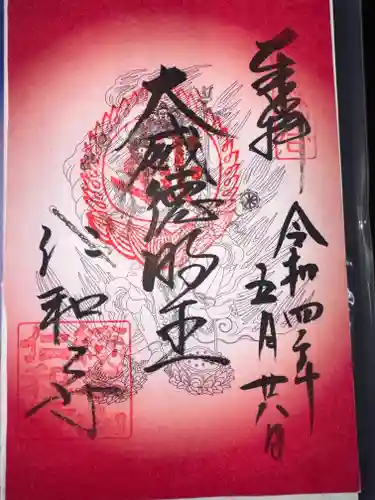 奉拝
令和四年
五月廿八日
大威徳明王
仁和寺